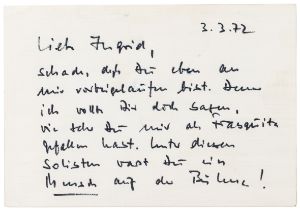 3.3.72
Liebe Ingrid,
schade, daß Du eben an
mir vorbeigelaufen bist. Denn
ich wollte Dir doch sagen,
wie sehr Du mir als Frasquita
gefallen hast. Unter diesen
Solisten warst Du ein
Mensch auf der Bühne!